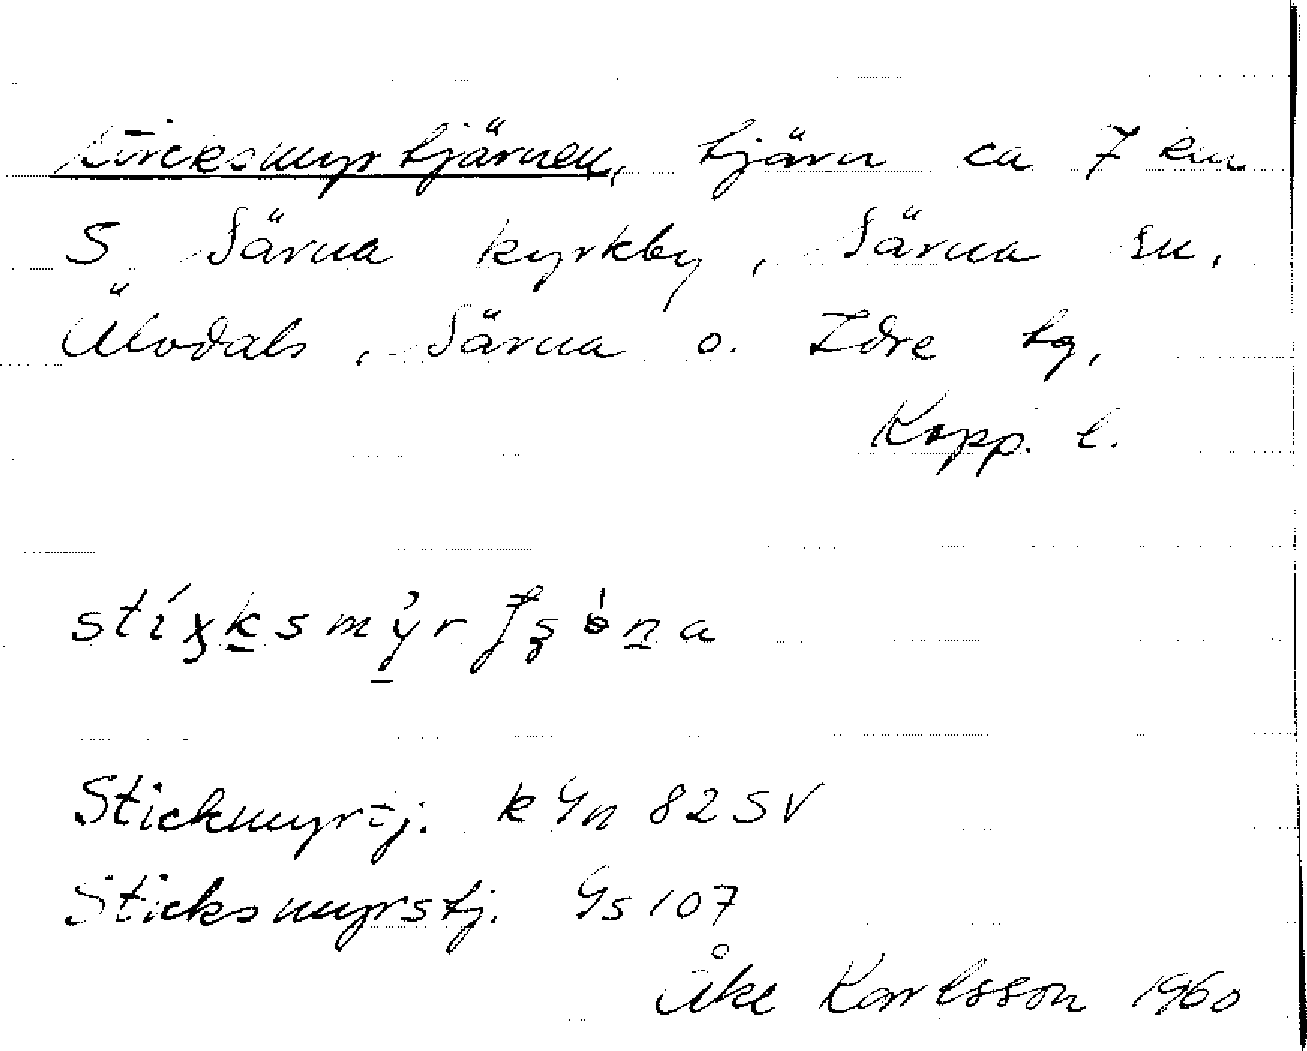 Sticksmyrtjärnen, tjärn ca 7 km
S Särna kyrkby, Särna sn,
Älvdals, Särna o. Idre tg,
Kopp. l.
Stickmyrtj. k Gn 82 SV
Sticksmyrstj. Gs 107
Åke Karlsson 1960